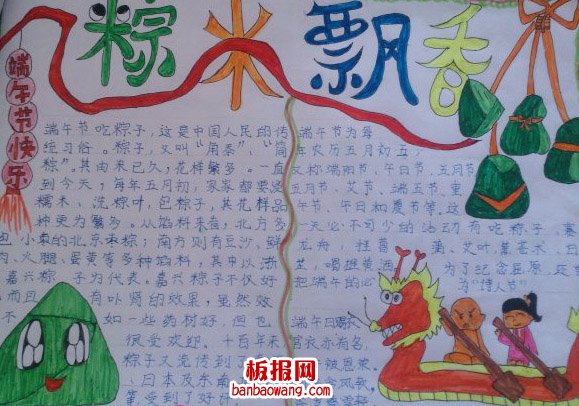 粽米飘香
端午节快乐
端午节吃粽子，这是中国人民的传
统习俗。粽子，又叫"角黍"、"筒
粽"。其由来已久，花样繁多。一直
到今天，每年五月初，家家都要浸
糯米、洗粽叶、包粽子，其花样品
种更为繁多。从馅料来看，北方多
包小枣的北京枣粽；南方则有豆沙、鲜
肉、火腿、蛋黄等多种馅料，其中以浙
嘉兴粽子为代表。嘉兴粽子不仅好
而且 有 的效果，虽然效
不 如一些药材好，但也
很受欢迎。千百年来
粽子又流传到
日本及东南
等受到了好
端午节为每
年农历五月初五，
又称端阳节、午日节、五月节
五月节、艾节、端五节、重
午节、午日、夏节等。这
一天必不可少的活动有吃粽子，赛
龙舟，挂菖蒲、艾叶，薰苍术、白
芷，喝雄黄酒。
为了纪念屈原，还
把端午的
为"诗人节"
端午日赐衣
宫衣亦有名，
被恩荣。
板报网
banbaowang.com